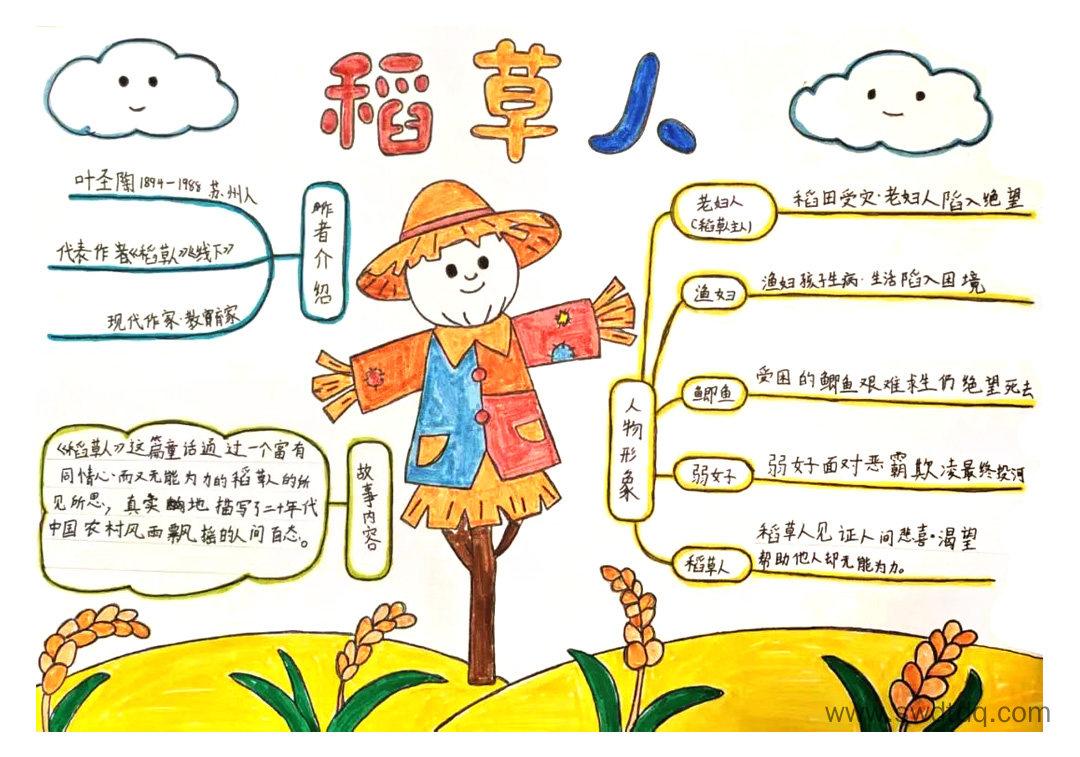 稻草人
叶圣陶1894-1988 苏州人
代表作者《稻草人》《线下》
现代作家·教育家
作者介绍
《稻草人》这篇童话通过一个富有
同情心·而又无能为力的稻草人的所
见所思，真实地描写了二十年代
中国农村风雨飘摇的人间百态。
故事内容
人物形象
老妇人
(稻草主人)
稻田受灾·老妇人陷入绝望
渔妇
渔妇孩子生病·生活陷入困境
鲫鱼
受困的鲫鱼艰难求生仍绝望死去
弱女子
弱女子面对恶霸欺凌最终投河
稻草人
稻草人见证人间悲喜·渴望
帮助他人却无能为力。
www.swdtdq.com